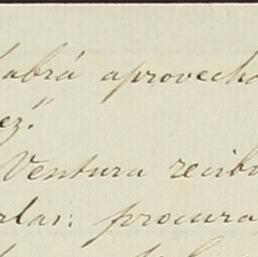 abrá aprovecho
ez."
Ventura recibi
rlas: procura